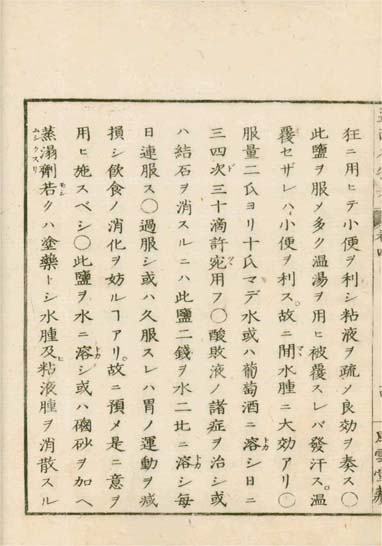 狂ニ用ヒテ小便ヲ利シ粘液ヲ疏ノ良効ヲ奏ス〇
此鹽ヲ服メ多ク温湯ヲ用ヒ被覆スレバ發汗ス。温
覆セザレハ小便ヲ利ス。故ニ間水腫ニ大効アリ〇
服量二氐ヨリ十氐マデ水或ハ葡萄酒ニ溶シ日ニ
三四次三十滴許宛用フ〇酸敗液ノ諸症ヲ治シ或
ハ結石ヲ消スルニハ此鹽二錢ヲ水二比ニ溶シ毎
日連服ス〇過服シ或ハ久服スレハ胃ノ運動ヲ減
損シ飲食ノ消化ヲ妨ルヿアリ。故ニ預メ是ニ意ヲ
用ヒ施スベシ〇此鹽ヲ水ニ溶シ或ハ磠砂ヲ加ヘ
蒸溻劑若クハ塗藥トシ水腫及粘液腫ヲ消散スル